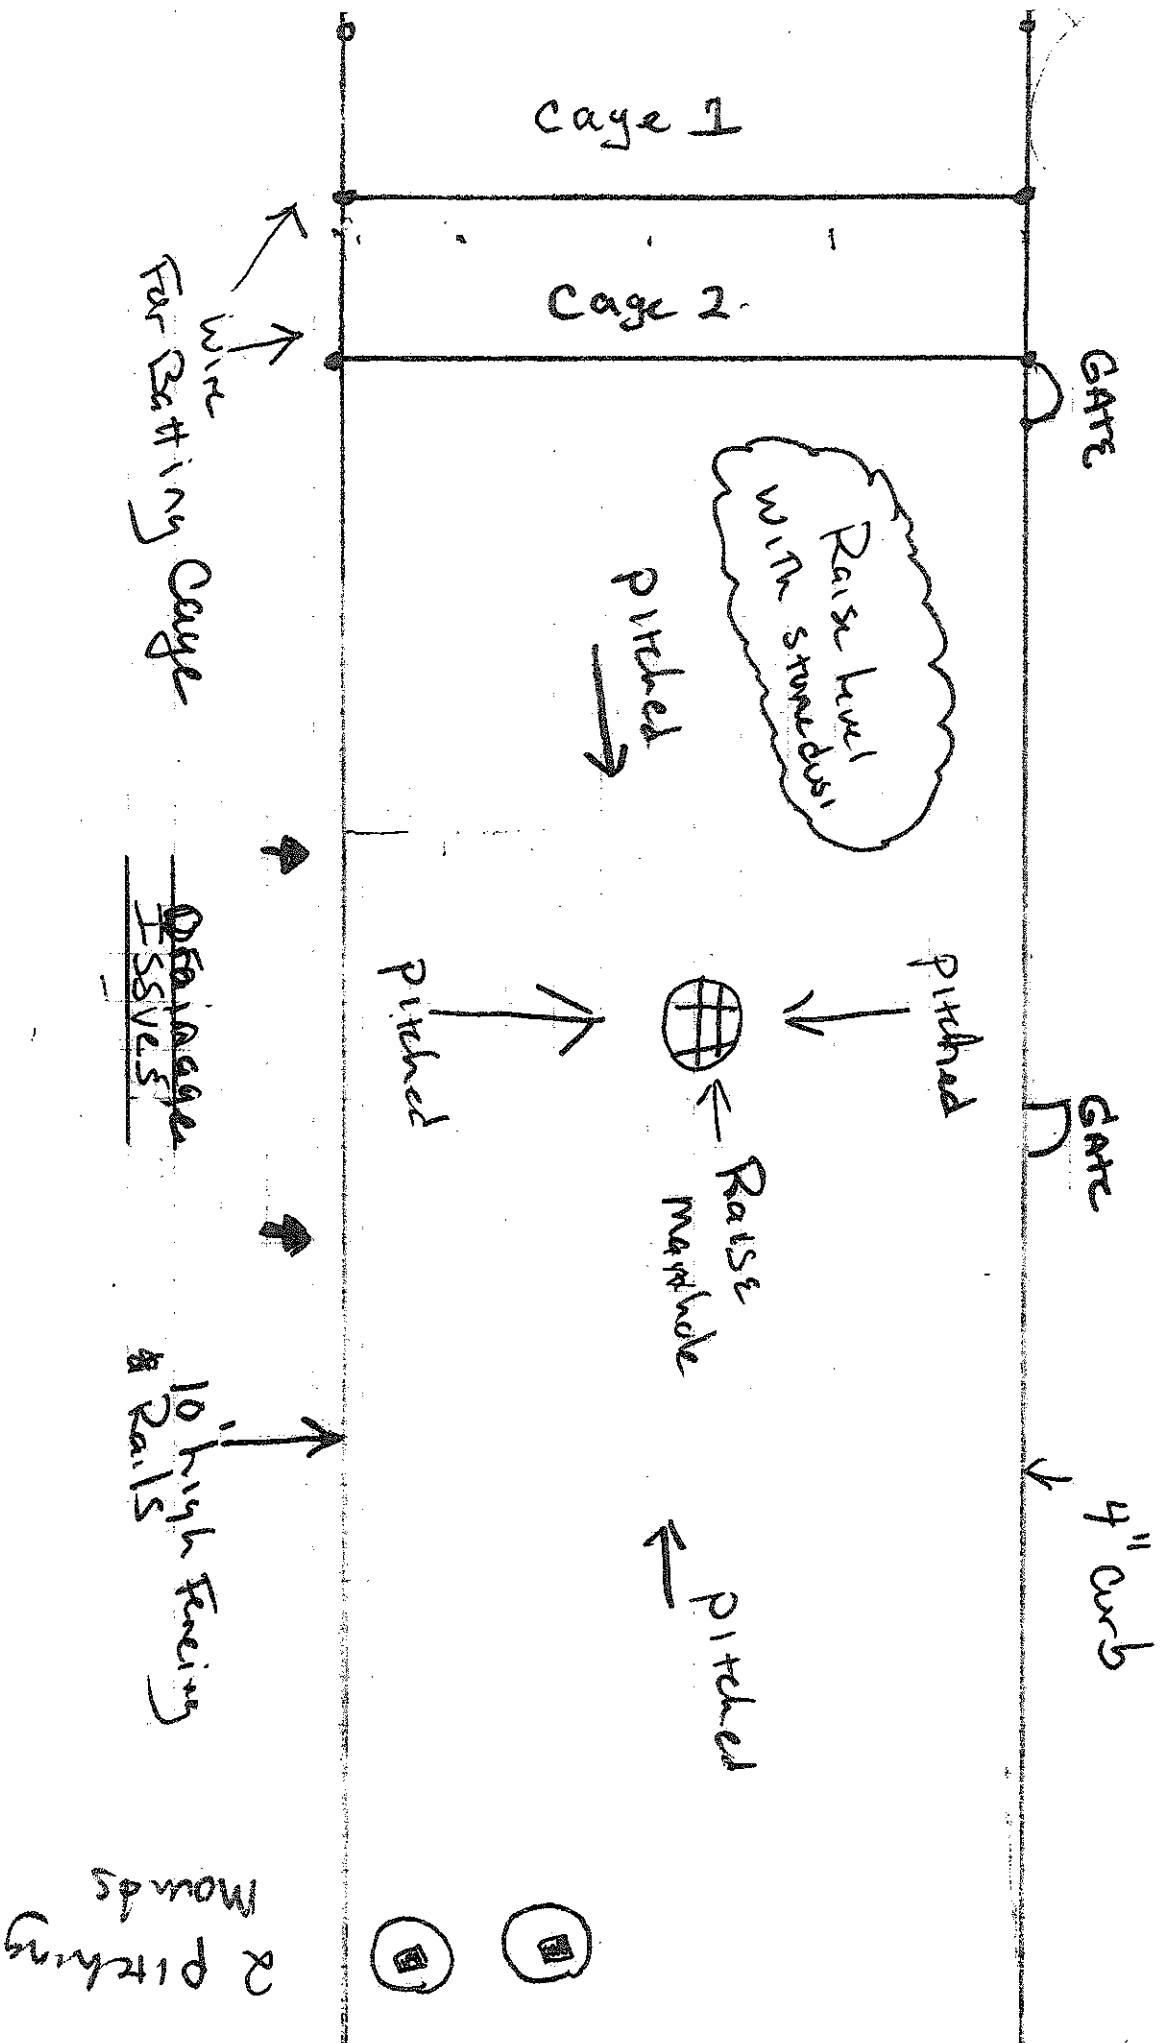 Cage 1
Cage 2
GATE
Wire
For Batting Cage
Raise level
with stonedust
pitched
pitched
pitched
GATE
Raise
manhole
Drainage
Issues
4" curb
10' high Fencing
& Rails
pitched
2 pitching
Mounds